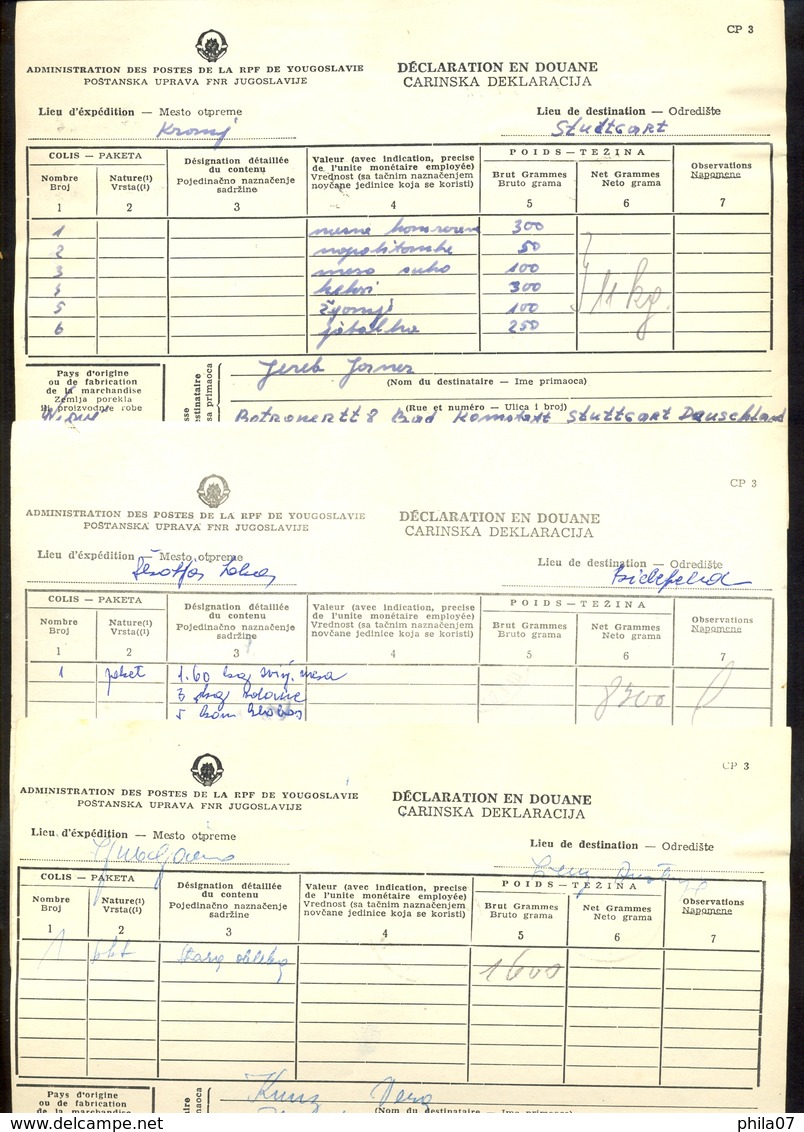 CP 3
ADMINISTRATION DES POSTES DE LA RPF DE YOUGOSLAVIE
POŠTANSKA UPRAVA FNR JUGOSLAVIJE
DÉCLARATION EN DOUANE
CARINSKA DEKLARACIJA
Lieu d'éxpédition — Mesto otpreme
Kranj
Lieu de destination — Odredište
Stuttgart
COLIS — PAKETA
Nombre Broj
Nature(1) Vrsta((1)
Désignation détaillée du contenu Pojedinačno naznačenje sadržine
Valeur (avec indication, precise de l'unite monétaire employée) Vrednost (sa tačnim naznačenjem novčane jedinice koja se koristi)
POIDS — TEŽINA
Brut Grammes Bruto grama
Net Grammes Neto grama
Observations Napomene
1 2 3 4 5 6 7
1 300
2 50
3 meso suho 100
4 keksi 300
5 100
6 250
11 kg.
Pays d'origine
ou de fabrication
de la marchandise
Zemlja porekla
ili proizvodnje robe
sse
estinataire
sa primaoca
Jereb
(Nom du destinataire — Ime primaoca)
(Rue et numéro — Ulica i broj)
8 Bad Stuttgart Dauschland
CP 3
ADMINISTRATION DES POSTES DE LA RPF DE YOUGOSLAVIE
POŠTANSKA UPRAVA FNR JUGOSLAVIJE
DÉCLARATION EN DOUANE
CARINSKA DEKLARACIJA
Lieu d'éxpédition — Mesto otpreme
Škofja Loka
Lieu de destination — Odredište
Bielefeld
COLIS — PAKETA
Nombre Broj
Nature(1) Vrsta((1)
Désignation détaillée du contenu Pojedinačno naznačenje sadržine
Valeur (avec indication, precise de l'unite monétaire employée) Vrednost (sa tačnim naznačenjem novčane jedinice koja se koristi)
POIDS — TEŽINA
Brut Grammes Bruto grama
Net Grammes Neto grama
Observations Napomene
1 2 3 4 5 6 7
1 paket 1.60 kg svinj. mesa
3 kg 8300
5 kom
CP 3
ADMINISTRATION DES POSTES DE LA RPF DE YOUGOSLAVIE
POŠTANSKA UPRAVA FNR JUGOSLAVIJE
DÉCLARATION EN DOUANE
CARINSKA DEKLARACIJA
Lieu d'éxpédition — Mesto otpreme
Ljubljana
Lieu de destination — Odredište
COLIS — PAKETA
Nombre Broj
Nature(1) Vrsta((1)
Désignation détaillée du contenu Pojedinačno naznačenje sadržine
Valeur (avec indication, precise de l'unite monétaire employée) Vrednost (sa tačnim naznačenjem novčane jedinice koja se koristi)
POIDS — TEŽINA
Brut Grammes Bruto grama
Net Grammes Neto grama
Observations Napomene
1 2 3 4 5 6 7
1 stara obleka 1600
Pays d'origine
ou de fabrication
de la marchandise
Kunz Vera
(Nom du destinataire — Ime primaoca)
delcampe.net
phila07